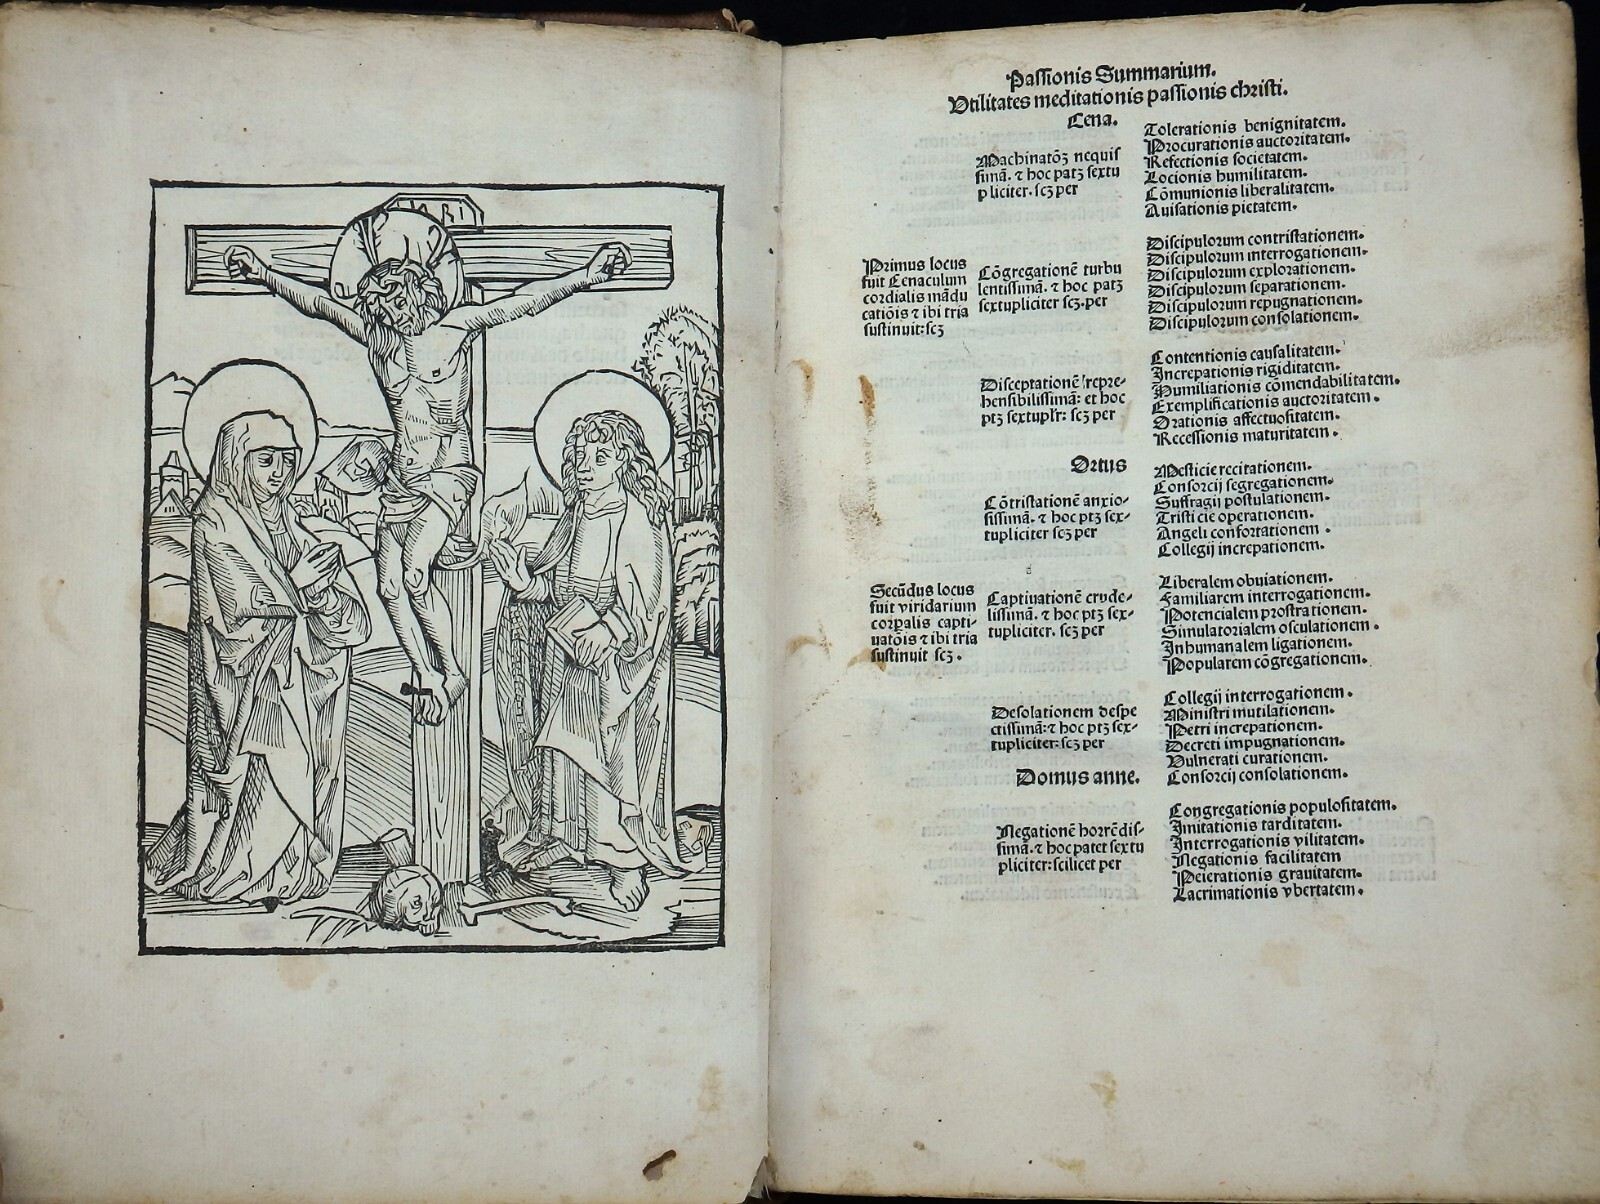 INRI
Passionis Summarium.
Vtilitates meditationis passionis christi.
Cena.
Machinatōꝫ nequis
simā. ⁊ hoc patꝫ sextu
pliciter. scꝫ per
Tolerationis benignitatem.
Procurationis auctoritatem.
Refectionis societatem.
Locionis humilitatem.
Cōmunionis liberalitatem.
Auisationis pietatem.
Primus locus
fuit Cenaculum
cordialis mādu
catiōis ⁊ ibi tria
sustinuit: scꝫ
Cōgregationē turbu
lentissimā. ⁊ hoc patꝫ
sextupliciter scꝫ. per
Discipulorum contristationem.
Discipulorum interrogationem.
Discipulorum explorationem.
Discipulorum separationem.
Discipulorum repugnationem.
Discipulorum consolationem.
Disceptationē repre-
hensibilissimā: et hoc
ptꝫ sextuplr: scꝫ per
Contentionis causalitatem.
Increpationis rigiditatem.
Humiliationis cōmendabilitatem.
Exemplificationis auctoritatem.
Orationis affectuositatem.
Recessionis maturitatem.
Ortus
Cōtristationē anxio-
sissimā. ⁊ hoc ptꝫ sex-
tupliciter scꝫ per
Mesticie recitationem.
Consorcij segregationem.
Suffragij postulationem.
Tristicie operationem.
Angeli confortationem.
Collegij increpationem.
Secūdus locus
fuit viridarium
corꝑalis capti-
uatōis ⁊ ibi tria
sustinuit scꝫ.
Captiuationē crude-
lissimā. ⁊ hoc ptꝫ sex-
tupliciter. scꝫ per
Liberalem obuiationem.
Familiarem interrogationem.
Potencialem prostrationem.
Simulatorialem osculationem.
Inhumanalem ligationem.
Popularem cōgregationem.
Desolationem despe
ctissimā: ⁊ hoc ptꝫ sex-
tupliciter: scꝫ per
Collegij interrogationem.
Ministri mutilationem.
Petri increpationem.
Decreti impugnationem.
Vulnerati curationem.
Consorcij consolationem.
Domus anne.
Negationē horrēdis-
simā. ⁊ hoc patet sextu
pliciter: scilicet per
Congregationis populositatem.
Imitationis tarditatem.
Interrogationis vilitatem.
Negationis facilitatem
Peierationis grauitatem.
Lacrimationis vbertatem.